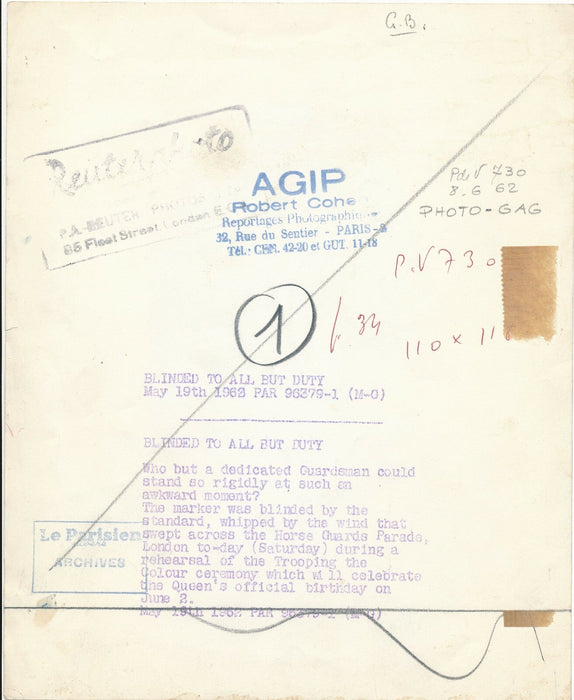 G.B.
Reuterphoto
P.A.-REUTER PHOTOS
85 Fleet Street London E
AGIP
Robert Cohe
Reportages Photographi
32, Rue du Sentier - PARIS-2
Tél.: CEN. 42-20 et GUT. 11-18
PdV 730
8.6 62
PHOTO-GAG
P.V 730
1
f. 34
110 x 11
BLINDED TO ALL BUT DUTY
May 19th 1962 PAR 96379-1 (M-G)
BLINDED TO ALL BUT DUTY
Who but a dedicated Guardsman could
stand so rigidly at such an
awkward moment?
The marker was blinded by the
standard, whipped by the wind that
swept across the Horse Guards Parade,
London to-day (Saturday) during a
rehearsal of the Trooping the
Colour ceremony which will celebrate
the Queen's official birthday on
June 2.
May 19th 1962 PAR 96379-1 (M-G)
Le Parisien
ARCHIVES